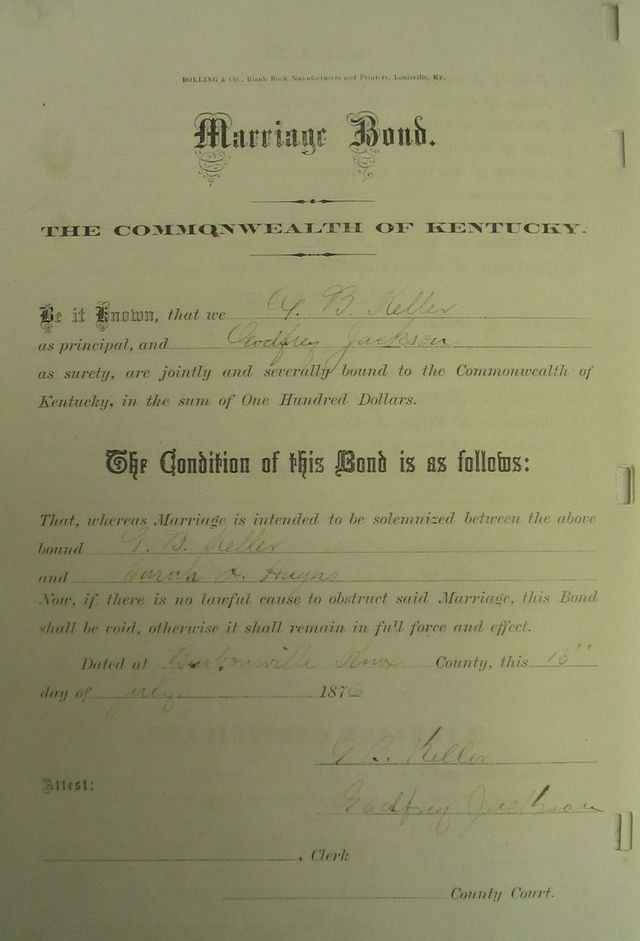 BOLLING & CO., Blank Book Manufacturers and Printers, Louisville, Ky.
Marriage Bond.
THE COMMONWEALTH OF KENTUCKY.
Be it Known, that we G. B. Keller
as principal, and Godfrey Jackson
as surety, are jointly and severally bound to the Commonwealth of
Kentucky, in the sum of One Hundred Dollars.
The Condition of this Bond is as follows:
That, whereas Marriage is intended to be solemnized between the above
bound G. B. Keller
and Sarah A. Hughs
Now, if there is no lawful cause to obstruct said Marriage, this Bond
shall be void, otherwise it shall remain in full force and effect.
Dated at Knox County, this
day of July 1876
G B. Keller
Attest:
Godfrey Jackson
, Clerk
County Court.